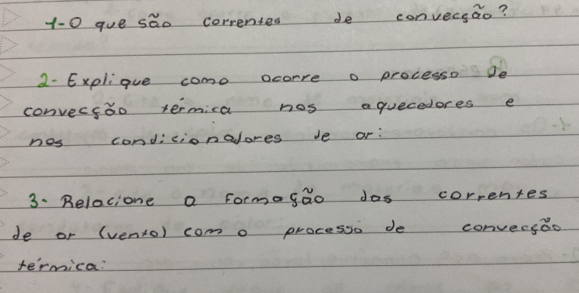 1-O que são correntes de convecção?
2- Explique como ocorre o processo de
convecção térmica nos aquecedores e
nos condicionadores de ar:
3- Relacione a formação das correntes
de ar (vento) com o processo de convecção
térmica: